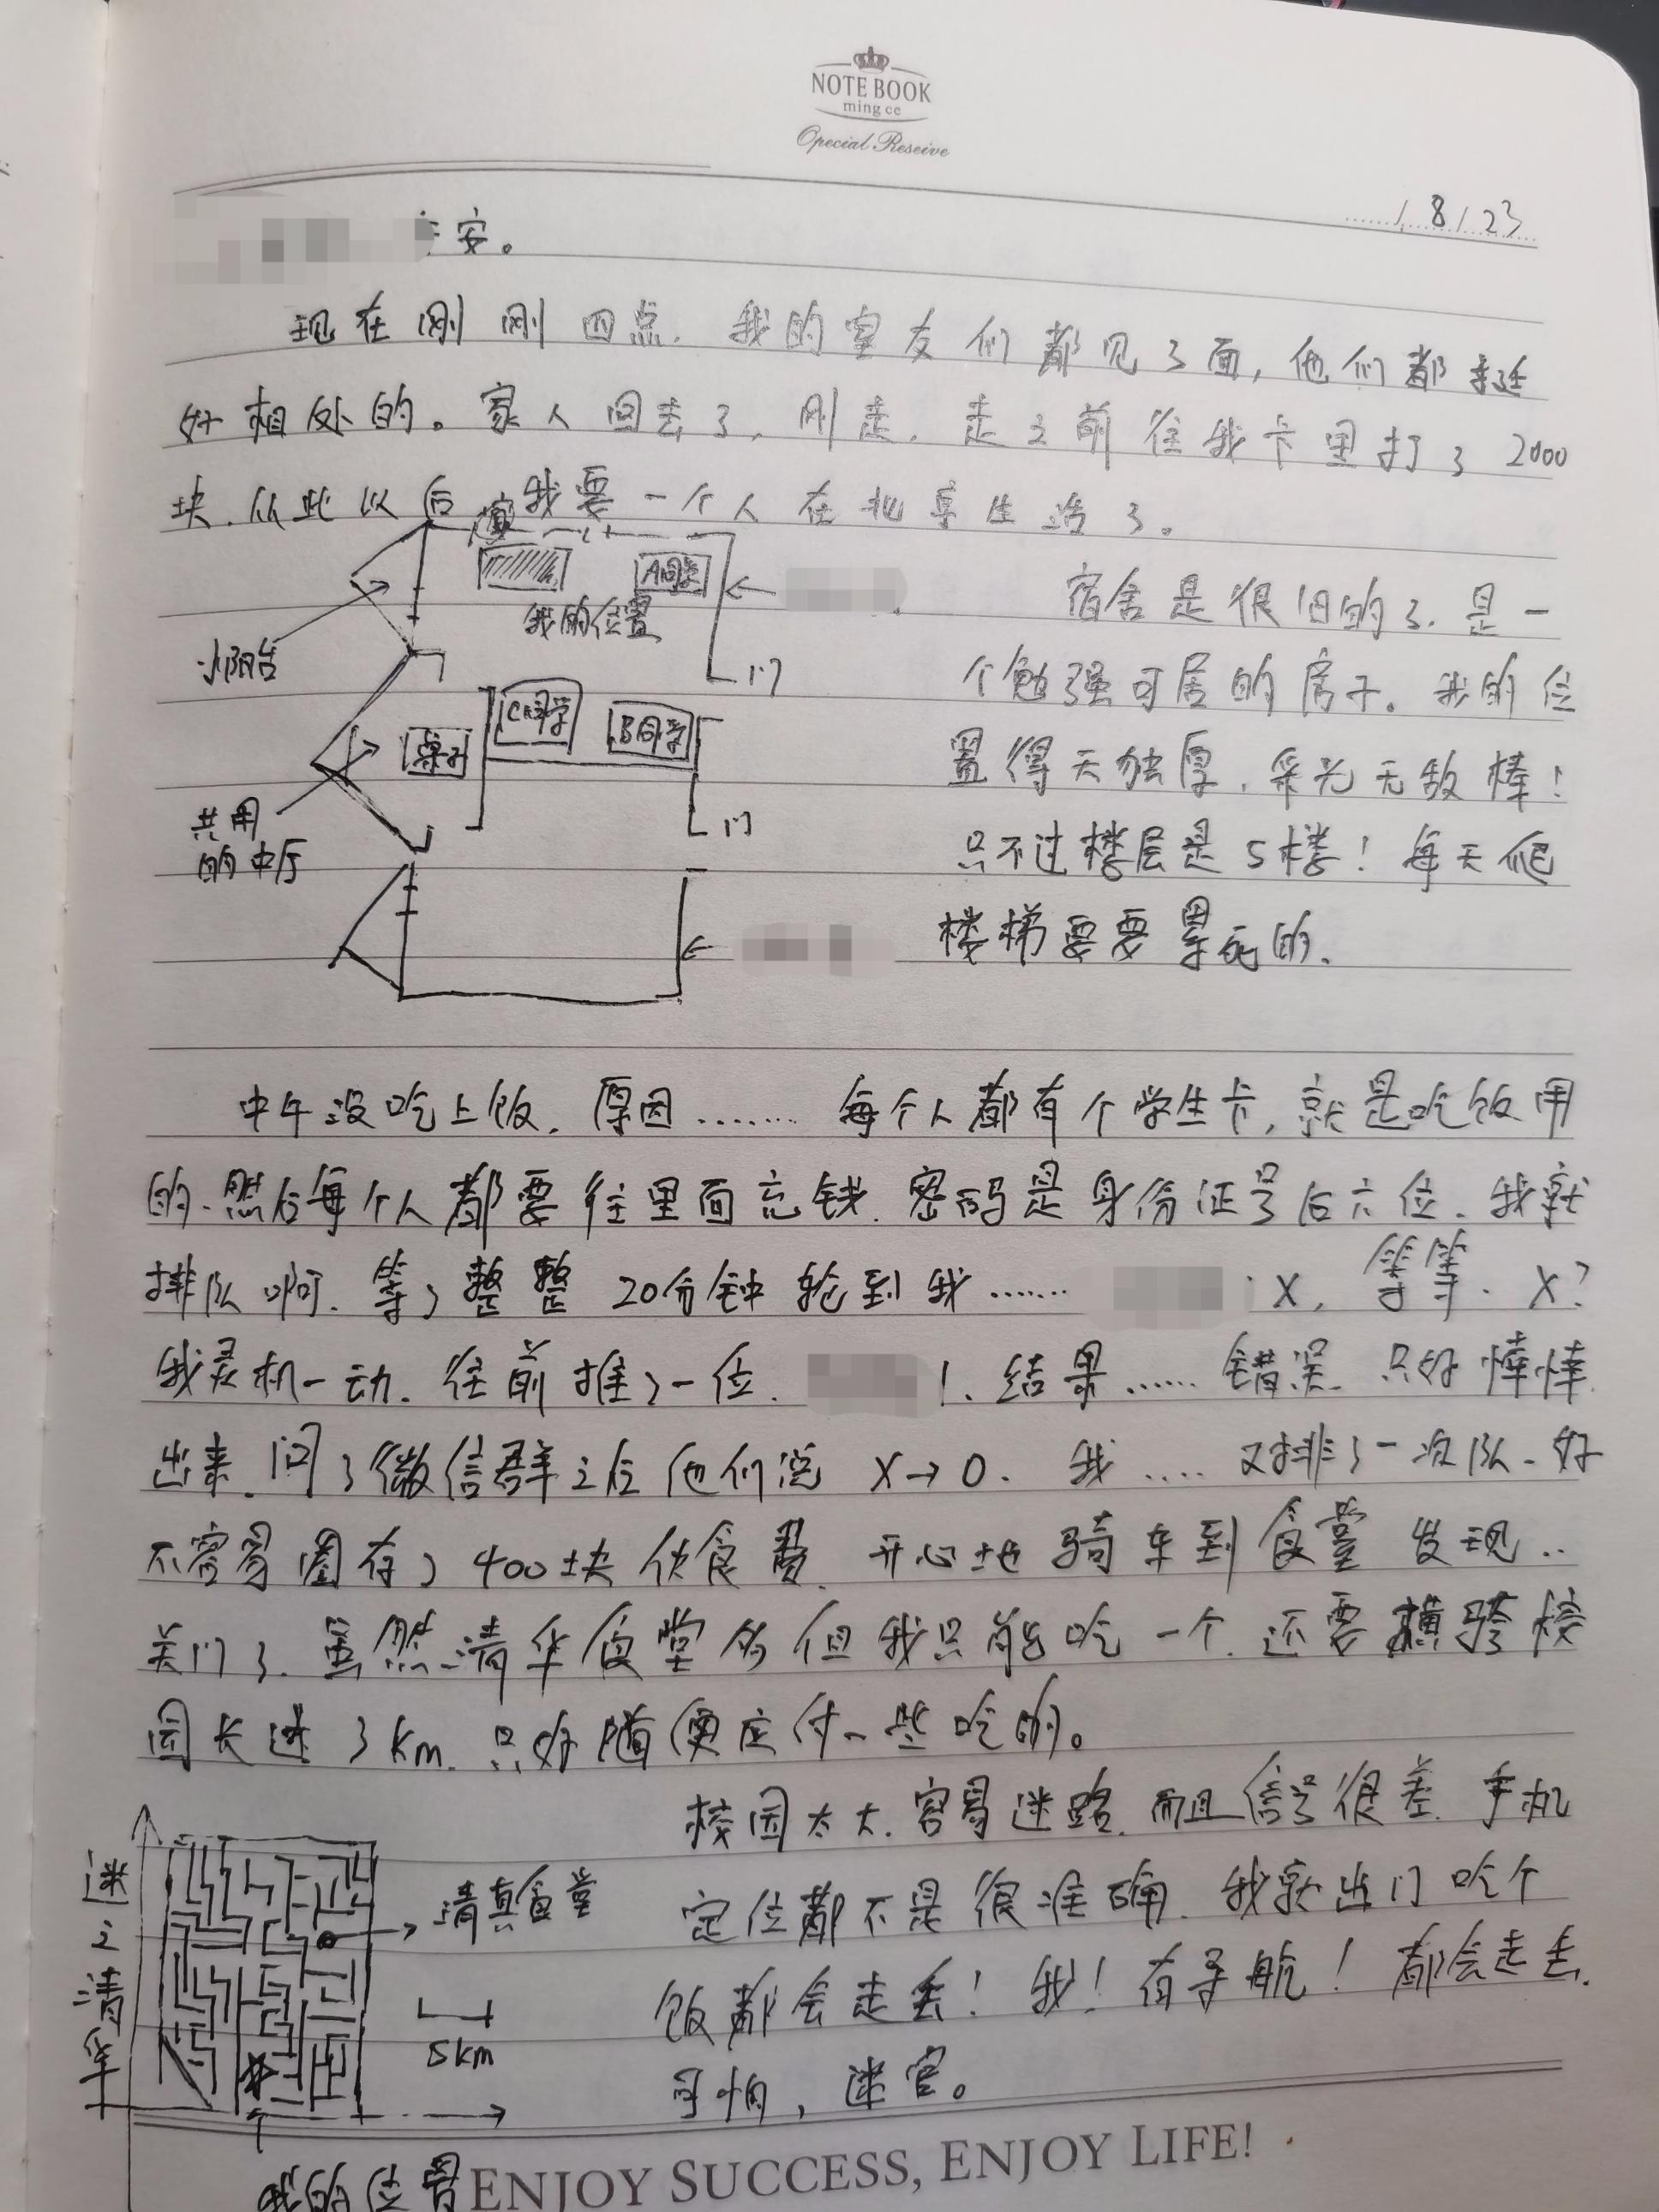 NOTE BOOK
ming ce
Special Reseive
1 8 / 23
安。
现在刚刚四点.我的室友们都见了面,他们都挺
好相处的。家人回去了,刚走.走之前往我卡里打了2000
块.从此以后我要一个人在北京生活了。
窗
A同学
我的位置
小阳台
门
宿舍是很旧的了.是一
个勉强可居的房子。我的位
置得天独厚,采光无敌棒!
只不过楼层是5楼!每天爬
楼梯要要累死的.
C同学
B同学
桌子
门
共用
的中厅
中午没吃上饭.原因……. 每个人都有个学生卡,就是吃饭用
的.然后每个人都要往里面充钱.密码是身份证号后六位.我就
排队啊.等了整整20分钟轮到我…… X,等等.X?
我灵机一动.往前推了一位. 1.结果……错误.只好悻悻
出来.问了微信群之后他们说X→0.我….又排了一次队.好
不容易圈存了400块伙食费.开心地骑车到食堂发现..
关门了.虽然清华食堂多但我只能吃一个.还要横跨校
园长达3km.只好随便应付一些吃的。
校园太大.容易迷路.而且信号很差.手机
定位都不是很准确.我就出门吃个
饭都会走丢!我!有导航!都会走丢.
可怕,迷宫。
迷之清华
清真食堂
5km
我的位置
ENJOY SUCCESS, ENJOY LIFE!